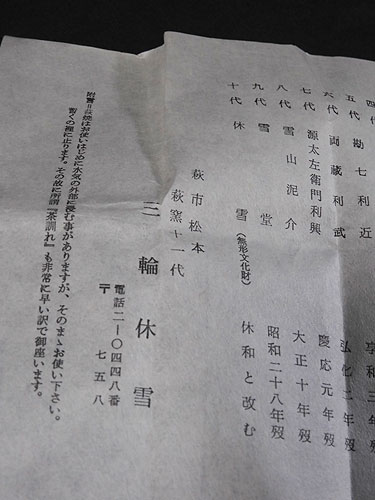 四代
五代 勘七利近 享和三年
六代 両蔵利武 弘化二年歿
七代 源太左衛門利興 慶応元年歿
八代 雪山泥介 大正十年歿
九代 雪堂 昭和二十八年歿
十代 休雪(無形文化財) 休和と改む
萩市松本
萩窯十一代
三輪休雪
電話二ー〇四四八番
〒七五八
附言=萩焼はお使いはじめに水気の外部に浸む事がありますが、そのまゝお使い下さい。
暫くの裡に止ります。その故に所謂『茶馴れ』も非常に早い訳で御座います。